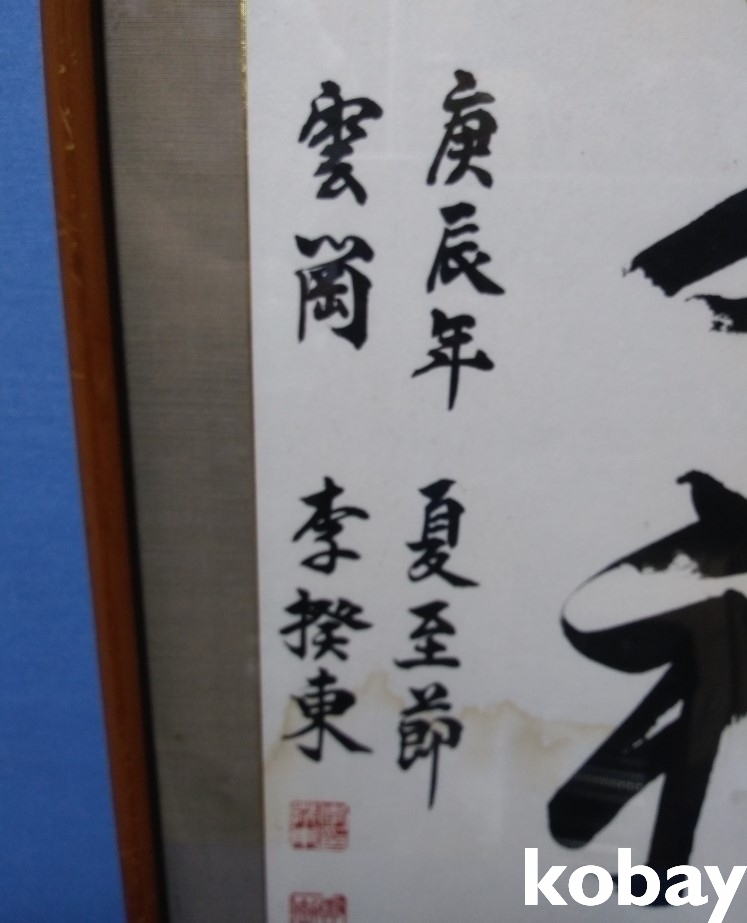 庚辰年 夏至節
雲岡 李揆東
kobay